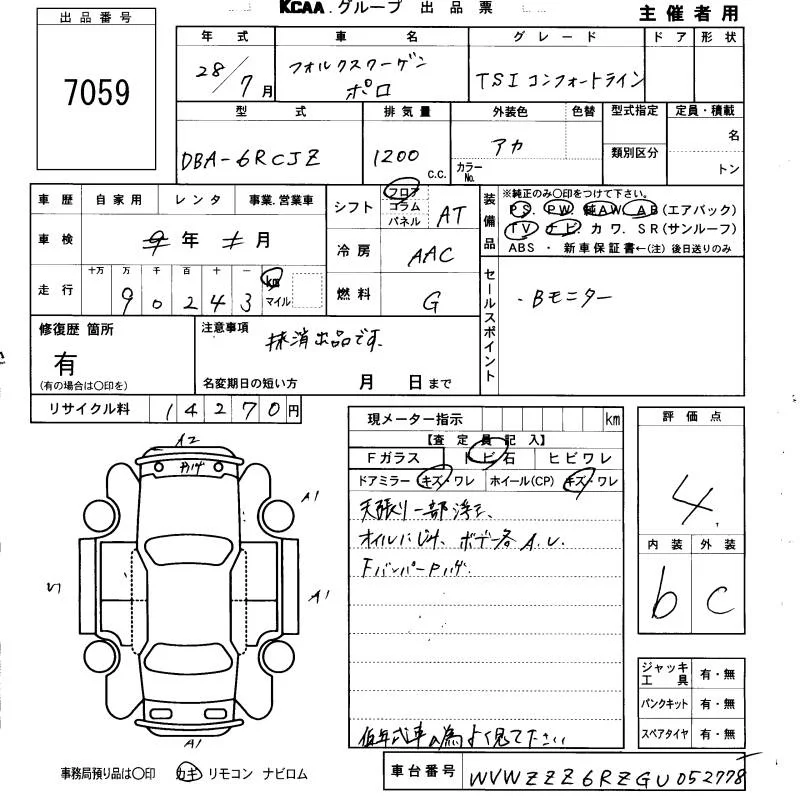 KCAA.グループ 出品票
主催者用
出品番号
7059
年式 車名 グレード ドア 形状
28/7月 フォルクスワーゲン ポロ TSI コンフォートライン
型式 排気量 外装色 色替 型式指定 定員・積載
DBA-6RCJZ 1200 c.c. アカ
カラーNo.
類別区分
名
トン
車歴 自家用 レンタ 事業.営業車
車検 年 月
走行 十万 万 千 百 十 一
90243 km マイル
シフト フロア コラム パネル AT
冷房 AAC
燃料 G
装備品
※純正のみ〇印をつけて下さい。
PS. PW. 純AW. AB(エアバック)
TV ナビ カワ. SR(サンルーフ)
ABS ・ 新車保証書←(注) 後日送りのみ
セールスポイント
・Bモニター
修復歴 箇所
有
(有の場合は〇印を)
注意事項
抹消出品です.
名変期日の短い方 月 日まで
リサイクル料 14270円
現メーター指示 km
【査定員記入】
Fガラス トビ石 ヒビワレ
ドアミラー キズ・ワレ ホイール(CP) キズ・ワレ
天張り一部浮き、
オイルにじみ、ボデー各A.U.
FバンパーPハゲ.
低年式車の為よく見て下さい
評価点
4
内装 外装
b C
ジャッキ工具 有・無
パンクキット 有・無
スペアタイヤ 有・無
A2
PハゲA1
A1
A1
事務局預り品は〇印 カギ リモコン ナビロム
車台番号 WVWZZZ6RZGU052778